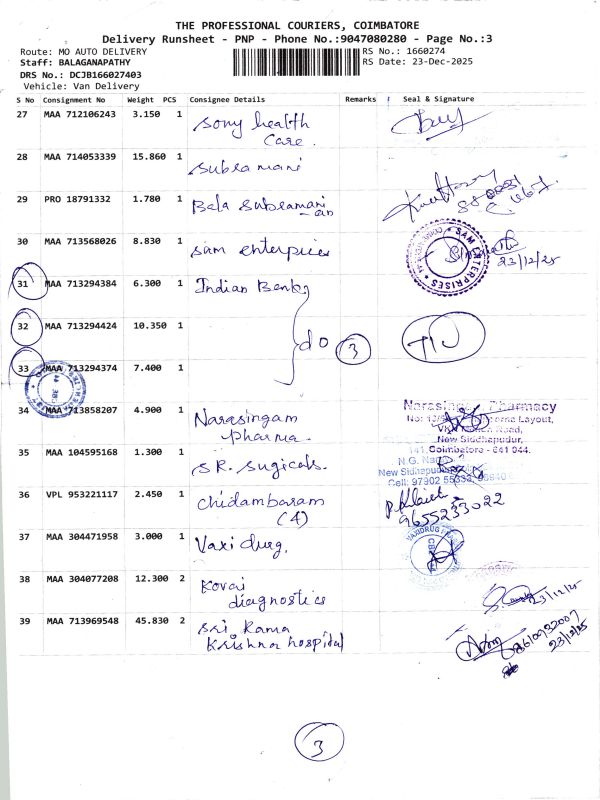 THE PROFESSIONAL COURIERS, COIMBATORE
Delivery Runsheet - PNP - Phone No.:9047080280 - Page No.:3
Route: MO AUTO DELIVERY RS No.: 1660274
Staff: BALAGANAPATHY RS Date: 23-Dec-2025
DRS No.: DCJB166027403
Vehicle: Van Delivery
S No Consignment No Weight PCS Consignee Details Remarks Seal & Signature
27 MAA 712106243 3.150 1 Sony health
Care.
28 MAA 714053339 15.860 1 Subramani
29 PRO 18791332 1.780 1 Bala Subramani
an
30 MAA 713568026 8.830 1 Sam enterprises
SAM ENTERPRISES
23/12/25
31 MAA 713294384 6.300 1 Indian Bank
32 MAA 713294424 10.350 1
do 3
33 MAA 713294374 7.400 1
34 MAA 713858207 4.900 1 Narasingam
pharma.
Narasingam Pharmacy
Layout,
Road,
New Siddhapudur,
Coimbatore - 641 044.
35 MAA 104595168 1.300 1 S.R. Sugicals.
N.G.
New Siddhapudur
Cell: 97902 55333,
36 VPL 953221117 2.450 1 Chidambaram
(4)
9655233022
37 MAA 304471958 3.000 1 Vaxi durg.
VAXIDRUG
38 MAA 304077208 12.300 2 Kovai
diagnostics
23/12/25
39 MAA 713969548 45.830 2 Sri Rama
Krishna hospital
23/12/25
3